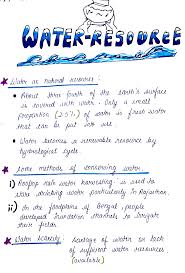 WATER-RESOURCE
Water as natural resource :
• About three fourth of the earth's surface
is covered with water. Only a small
proportion (2.5%) of water is fresh water
that can be put into use
• Water becomes a renewable resource by
hydrological cycle.
Some methods of conserving water
i) Rooftop rain water harvesting : is used to
store drinking water particularly in Rajasthan.
ii) In the floodplains of Bengal people
developed inundation channels to irrigate
their fields.
Water Scarcity : Shortage of water or lack
of sufficient water resources
(available)